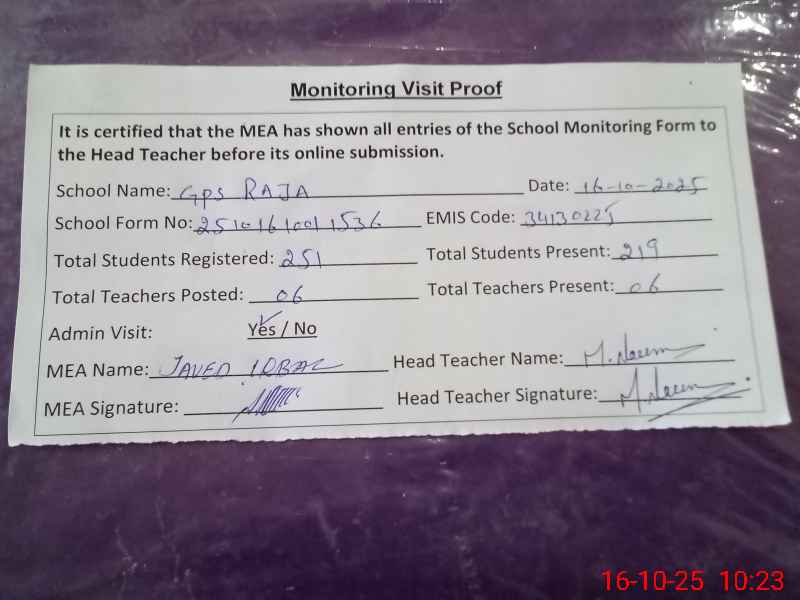 Monitoring Visit Proof
It is certified that the MEA has shown all entries of the School Monitoring Form to
the Head Teacher before its online submission.
School Name: GPS RAJA Date: 16-10-2025
School Form No: 25101610011536 EMIS Code: 34130225
Total Students Registered: 251 Total Students Present: 219
Total Teachers Posted: 06 Total Teachers Present: 06
Admin Visit: Yes / No
MEA Name: JAVED IQBAL Head Teacher Name: M. Naeem
MEA Signature: Head Teacher Signature: M. Naeem
16-10-25 10:23